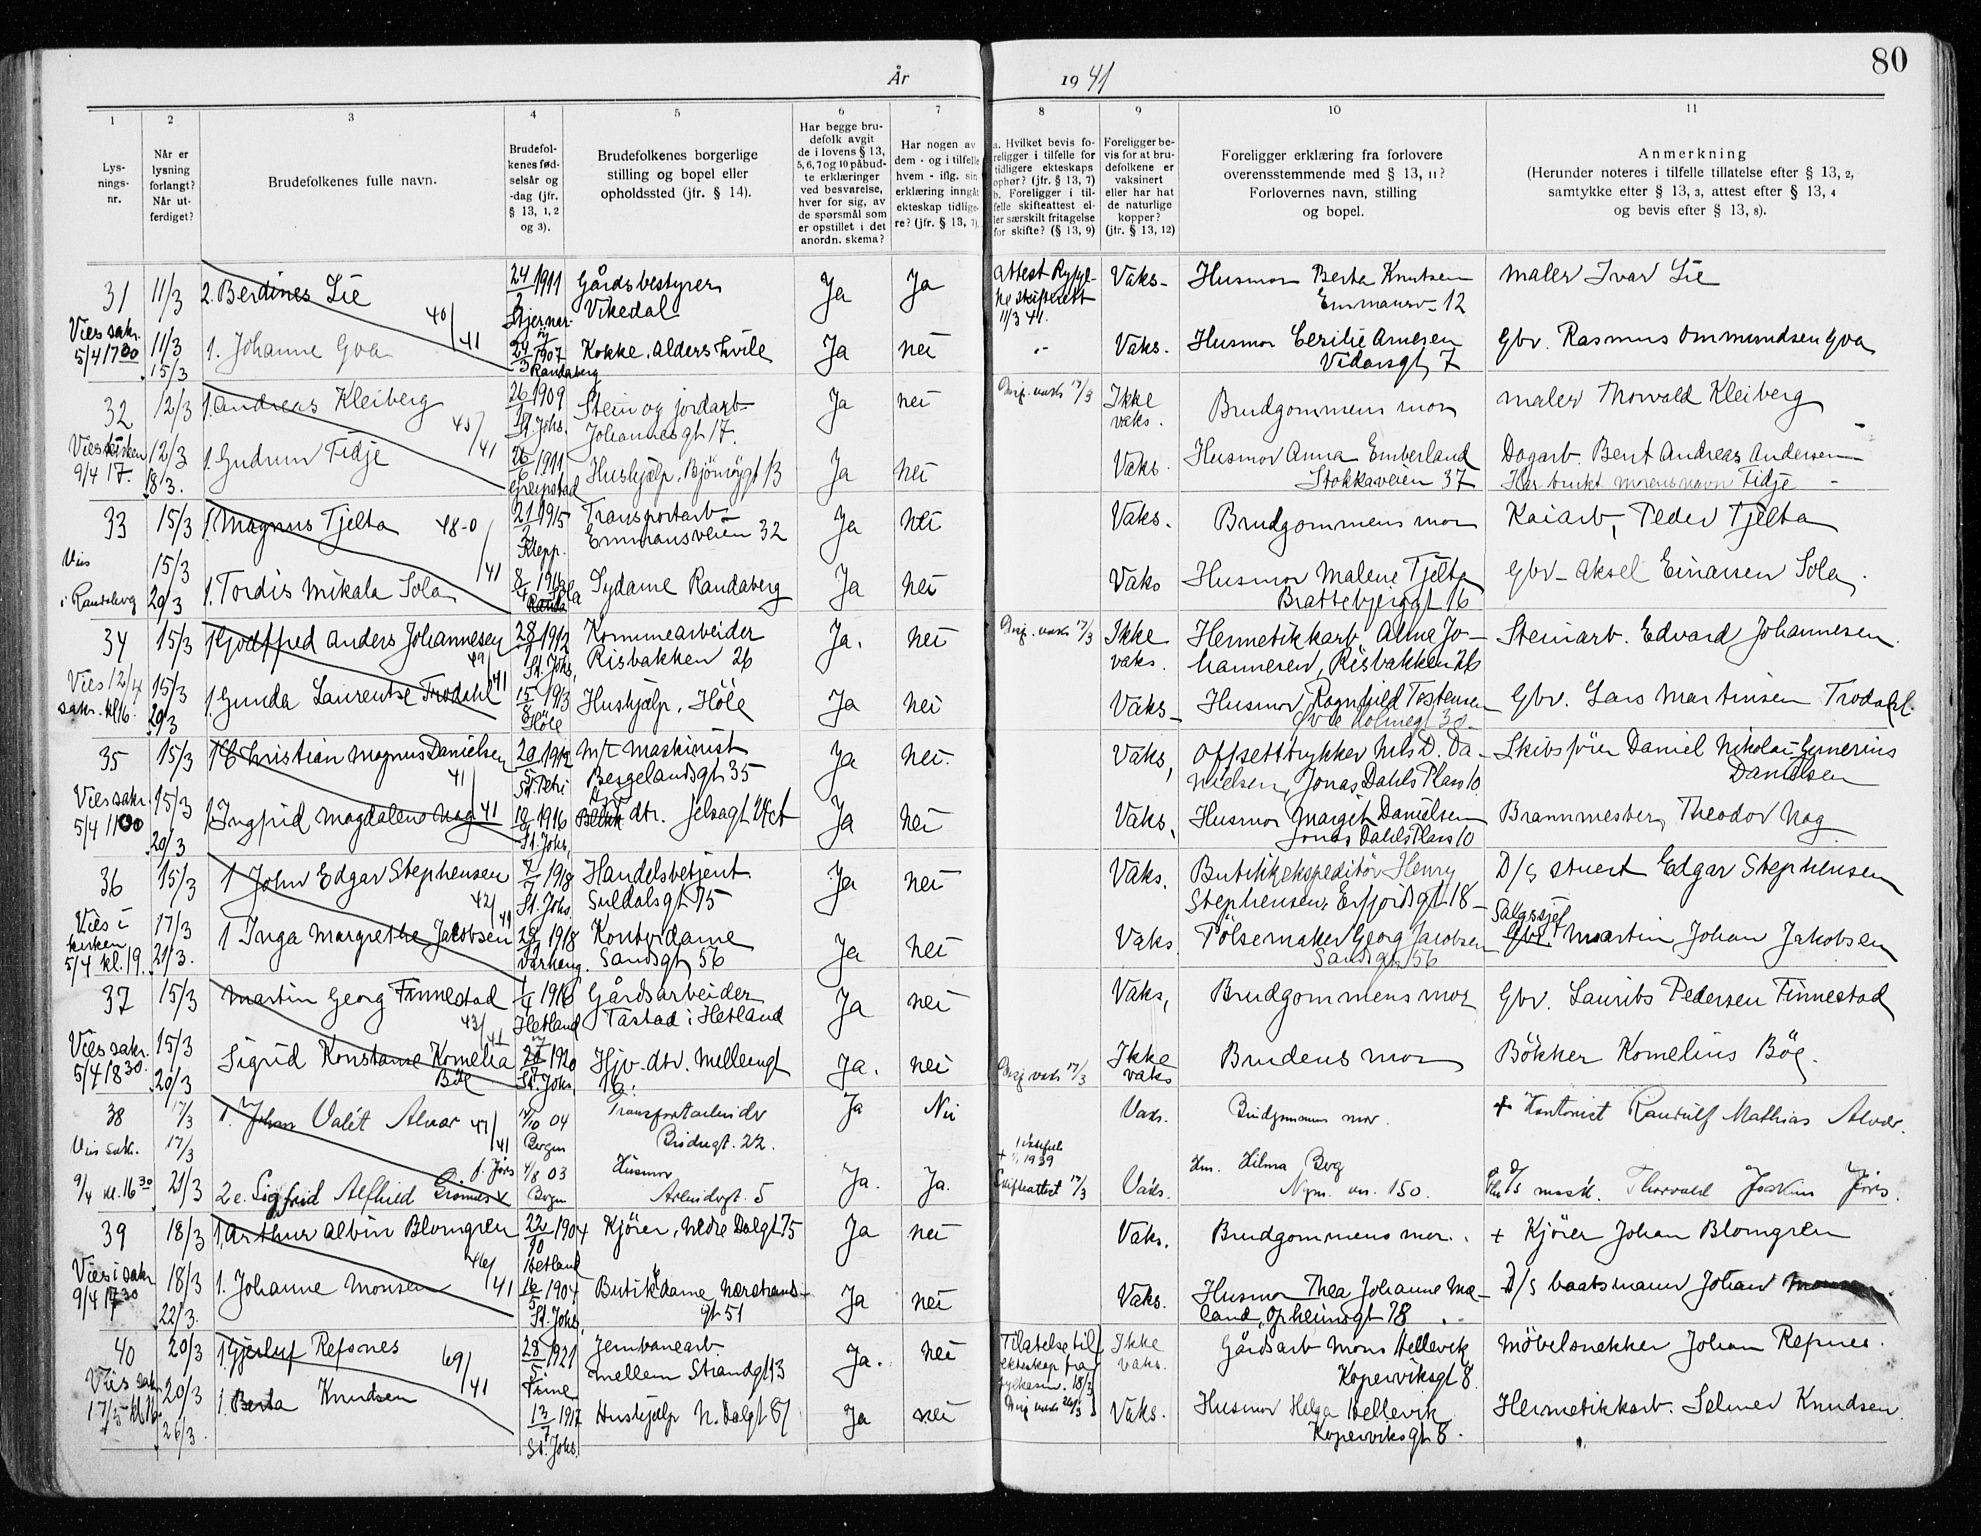 80
År 1941
1 2 3 4 5 6 7 8 9 10 11
Lysningsnr.
Når er lysning forlangt? Når utferdiget?
Brudefolkenes fulle navn.
Brudefolkenes fødselsår og -dag (jfr. § 13, 1, 2 og 3).
Brudefolkenes borgerlige stilling og bopel eller opholdssted (jfr. § 14).
Har begge brudefolk avgit de i lovens § 13, 5, 6, 7 og 10 påbudte erklæringer ved besvarelse, hver for sig, av de spørsmål som er opstillet i det anordn. skema?
Har nogen av dem - og i tilfelle hvem - iflg. sin erklæring inngått ekteskap tidligere? (jfr. § 13, 7).
a. Hvilket bevis foreligger i tilfelle for tidligere ekteskaps ophør? (jfr. § 13, 7)
b. Foreligger i tilfelle skifteattest eller særskilt fritagelse for skifte? (§ 13, 9)
Foreligger bevis for at brudefolkene er vaksinert eller har hat de naturlige kopper? (jfr. § 13, 12)
Foreligger erklæring fra forlovere overensstemmende med § 13, 11? Forlovernes navn, stilling og bopel.
Anmerkning
(Herunder noteres i tilfelle tillatelse efter § 13, 2, samtykke efter § 13, 3, attest efter § 13, 4 og bevis efter § 13, 8).
31 11/3 2. Berdines Lie 24/2 1911 Stjernarøy Gårdsbestyrer Vikedal Ja Ja Attest 11/3 41. Vaks. Husmor Berta Knutsen Emmausv. 12 maler Ivar Lie
40/41
Vies sakr. 5/4 17 30 11/3 15/3 1. Johanne Goa 24/3 1907 Randaberg Kokke, Aldershvile Ja nei Vaks. Husmor Cecilie Arnesen Vidarsgt 7 Gbr. Rasmus Ommundsen Goa
32 12/3 1. Andreas Kleiberg 26 1909 St. Johs. Stein og jordarb. Johannesgt 17. Ja nei 17/3 Ikke vaks. Brudgommens mor maler Thorvald Kleiberg
45/41
Vies kirken 9/4 17. 12/3 18/3. 1. Gudrun Tidje 26/6 1911 Greipstad Hushjelp, Bjørnøygt 13 Ja nei Vaks. Husmor Anna Emberland Stokkaveien 37 Dagarb. Bent Andreas Andersen
Har brukt morens navn Tidje
33 15/3 1. Magnus Tjelta 21 1915 Klepp. Transportarb. Emmausveien 32 Ja nei Vaks. Brudgommens mor Kaiarb. Peder Tjelta
48-0/41
Vies i Randaberg 15/3 20/3 1. Tordis Mikala Sola 8/4 Sola Sydame Randaberg Ja nei Vaks Husmor Malene Tjelta Brattebjerggt 16 Gbr. Aksel Einarsen Sola.
34 15/3 1. Godtfred Anders Johannesen 28 1912 St. Johs. Kommearbeider Risbakken 26 Ja. nei 17/3 Ikke vaks. Hermetikkarb. Alma Johannesen, Risbakken 26 Steinarb. Edvard Johannesen.
49/41
Vies 12/4 sakr. kl 16. 15/3 20/3 1. Gunda Laurentse Trodahl 15/8 1913 Høle Hushjelp, Høle Ja nei Vaks. Husmor Ragnhild Torstensen Øvre Holmegt 30 Gbr. Lars Martinsen Trodahl.
35 15/3 1 Christian Magnus Danielsen 20/5 1912 St. Petri M/T maskinist Bergelandsgt 35 Ja nei. Vaks. Offsettrykker Nils D. Danielsen, Jonas Dahls Plass 10. Skibsfører Daniel Nikolai Danielsen
41/41
Vies sakr. 5/4 11 00 15/3 20/3 1 Ingrid Magdalene Nag 19 1916 St. Johs. dtr. Jelsagt Ja nei Vaks. Husmor Margit Danielsen Jonas Dahls Plass 10 Brannmester Theodor Nag
36 15/3 1 John Edgar Stephensen 7/7 1918 St. Johs. Handelsbetjent Suldalsgt 75 Ja nei Vaks. Butikkekspeditør Henry Stephensen, Erfjordgt 18 D/S stuert Edgar Stephensen
42/41
Vies i kirken 5/4 kl. 19. 17/3 21/3. 1 Inga Margrethe Jacobsen 28 1918 Varhaug. Kontordame Sandsgt 56 Ja nei Vaks Pølsemaker Georg Jacobsen Sandsgt 56 Salgssjef Martin Johan Jakobsen
37 15/3 Martin Georg Finnestad 1/4 1916 Hetland Gårdsarbeider Tastad i Hetland Ja nei Vaks, Brudgommens mor Gbr. Laurits Pedersen Finnestad
43/41
Vies sakr. 5/4 18 30. 15/3 20/3 Sigrid Konstanse Kornelia Bøe 1920 St. Johs. Hjv. dtr. Mellemgt 16. Ja. nei 17/3 Ikke vaks Brudens mor Bøkker Kornelius Bøe.
38 17/3 1. Johan Valét Alvær /10 04 Bergen Transportarbeider Brødregt. 22. Ja Nei Vaks. Brudgommens mor. + Kontorist Randulf Mathias Alvær.
47/41
Vies sakr. 9/4 kl. 16 30 17/3 21/3 2 e. Sigfrid Alfhild 4/8 03 Bergen Husmor Arbeidergt. 5 Ja. Ja. 1939 Skifteattest 17/3 Vaks. Hm. Hilma Berg Nym. vn. 150. D/S mask. Thorvald Joakim
39 18/3 1. Arthur Albin Blomgren 22/10 1904 Hetland Kjører, Nedre Dalgt 75 Ja nei Vaks. Brudgommens mor. + Kjører Johan Blomgren
46/41
Vies i sakr 9/4 17 30 18/3 22/3. 1. Johanne Monsen 16/5 1904 St. Johs. Butikkdame Nærstrandgt 51 Ja nei Vaks. Husmor Thea Johanne Mæland, Opheimsgt 78. D/S baatsmann Johan
40 20/3 1. Gjerluf Refsnes 28/5 1921 Jernbanearb. Mellem Strandgt 13 Ja. nei Tilatelse til ekteskap fra fylkesm. 18/3 Ikke vaks. Gårdsarb Mons Hellevik Kopervikgt 8. Møbelsnekker Johan Refsnes.
69/41
Vies sakr. 17/5 kl 16. 20/3 26/3. 1. Berta Knudsen 13/7 1917 St. Johs. Hushjelp N. Dalgt 87 Ja nei Vaks. Husmor Helga Hellevik Koperviksgt 8. Hermetikkarb. Selmer Knudsen.